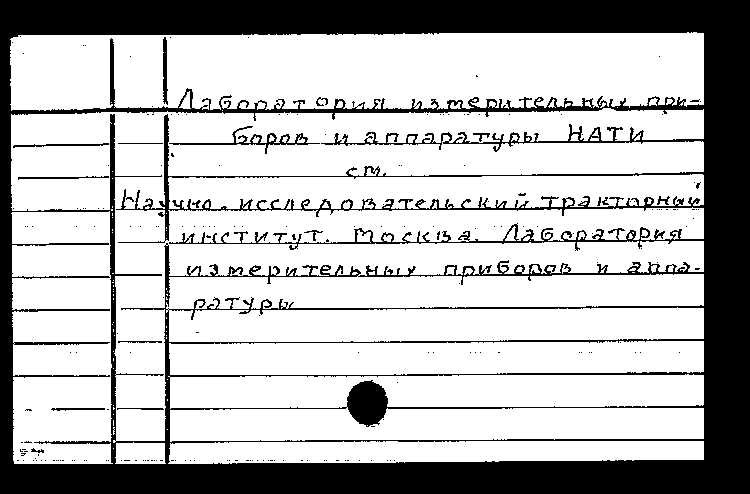 Лаборатория измерительных при-
боров и аппаратуры НАТИ
ст.
Научно-исследовательский тракторный
институт. Москва. Лаборатория
измерительных приборов и аппа-
ратуры